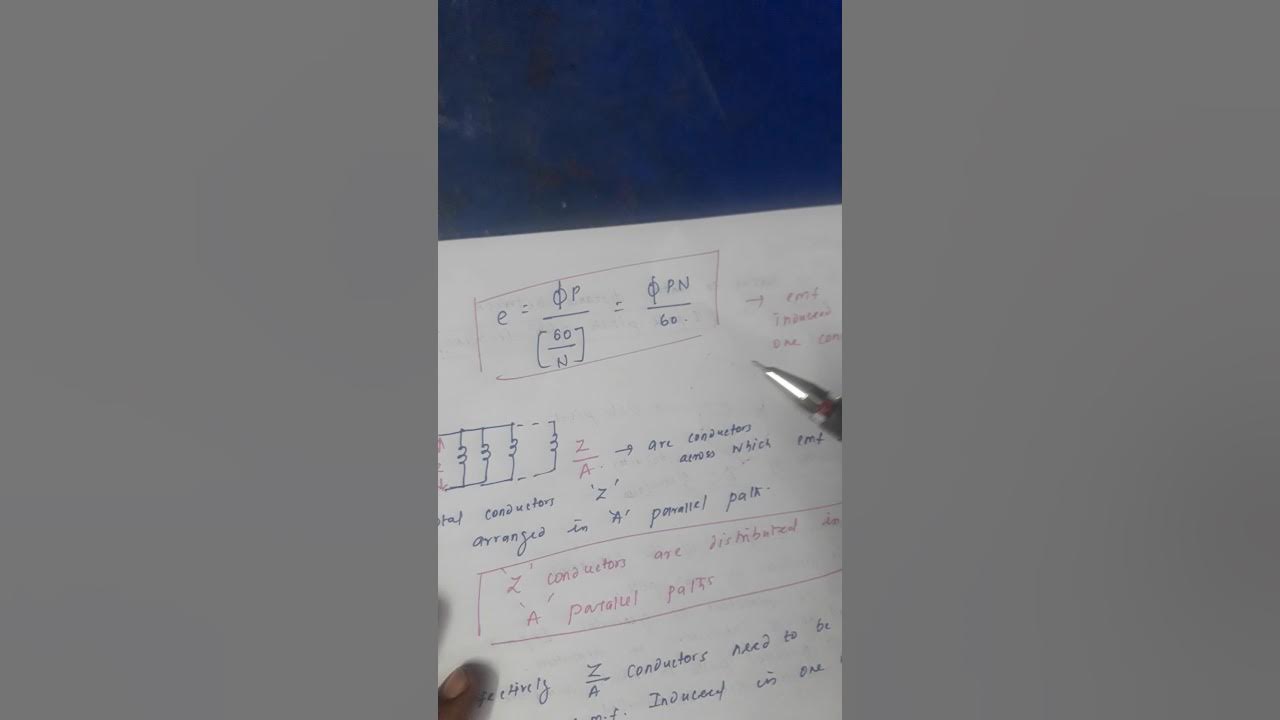 e = ΦP / [60/N] = ΦPN / 60.
→ emf
induced
one
Z/A. → are conductors
across which emf
conductors 'Z'
arranged in 'A' parallel path.
'Z' conductors are distributed in
'A' parallel paths
Z/A conductors need to be
Induced in one